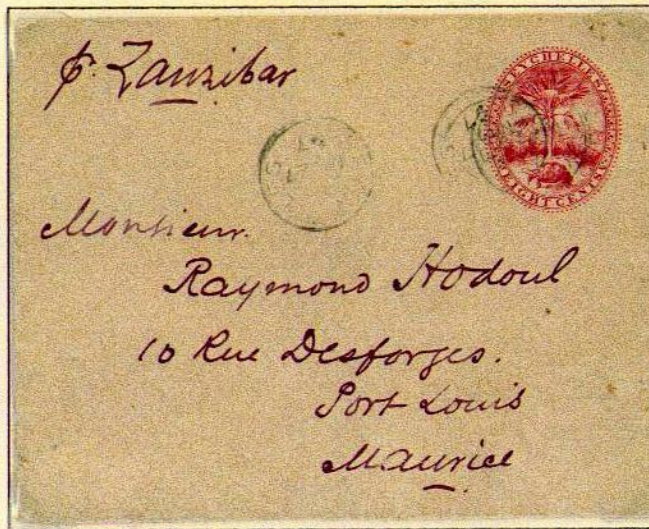 p. Zanzibar
SEYCHELLES
EIGHT CENTS
Monsieur.
Raymond Hodoul
10 Rue Desforges.
Port Louis
Maurice